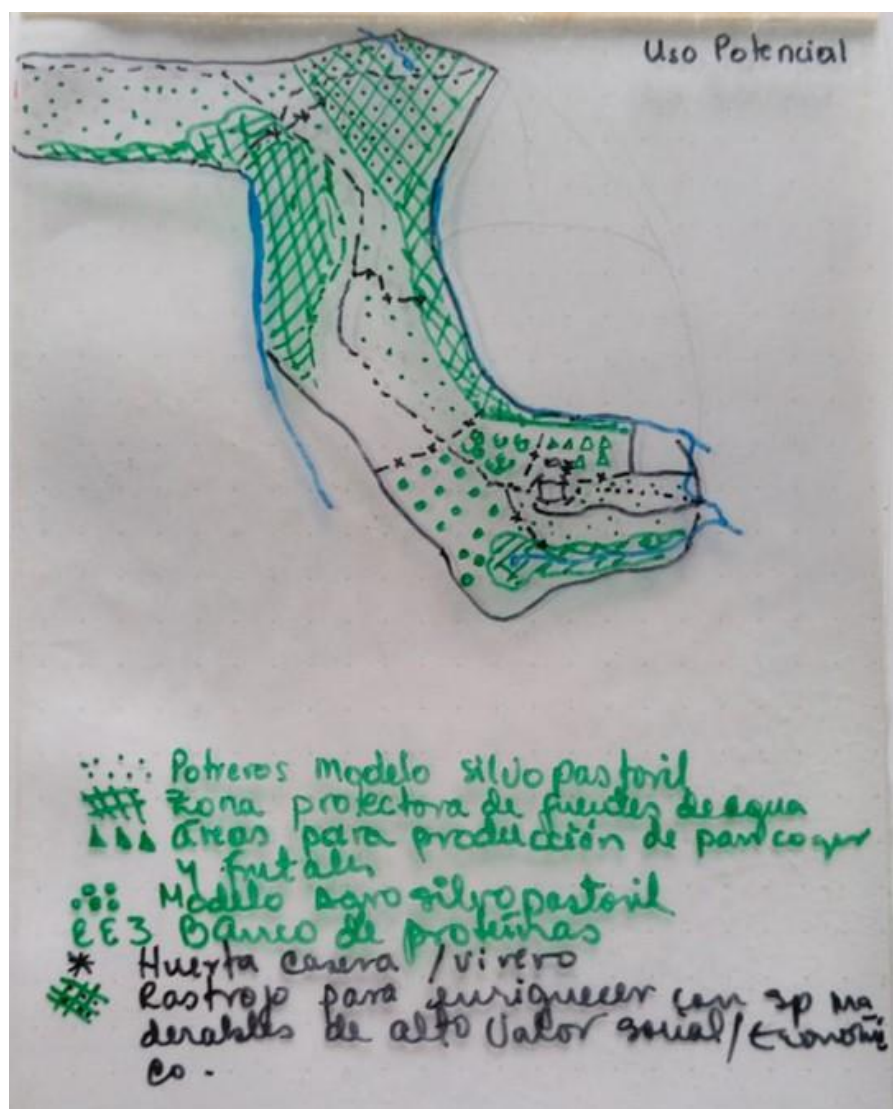 Uso Potencial
Potreros Modelo silvopastoril
Zona protectora de fuentes de agua
áreas para producción de pancoger
y frutales
Modelo agrosilvopastoril
Banco de proteínas
Huerta casera / vivero
Rastrojo para enriquecer con sp ma
derables de alto valor social/Económi
co.